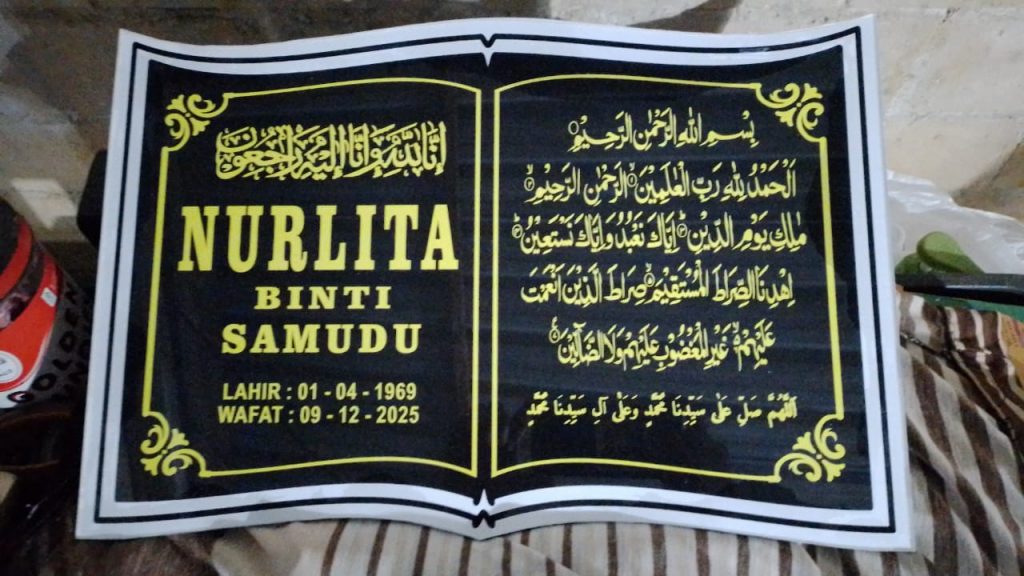 إنا لله وإنا إليه راجعون
NURLITA
BINTI
SAMUDU
LAHIR : 01 - 04 - 1969
WAFAT : 09 - 12 - 2025
بِسْمِ اللهِ الرَّحْمٰنِ الرَّحِيْمِ ۝١
اَلْحَمْدُ لِلّٰهِ رَبِّ الْعٰلَمِيْنَ ۝٢ الرَّحْمٰنِ الرَّحِيْمِ ۝٣
مٰلِكِ يَوْمِ الدِّيْنِ ۝٤ اِيَّاكَ نَعْبُدُ وَاِيَّاكَ نَسْتَعِيْنُ ۝٥
اِهْدِنَا الصِّرَاطَ الْمُسْتَقِيْمَ ۝٦ صِرَاطَ الَّذِيْنَ اَنْعَمْتَ
عَلَيْهِمْ غَيْرِ الْمَغْضُوْبِ عَلَيْهِمْ وَلَا الضَّآلِّيْنَ ۝٧
اَللّٰهُمَّ صَلِّ عَلٰى سَيِّدِنَا مُحَمَّدٍ وَعَلٰى آلِ سَيِّدِنَا مُحَمَّدٍ